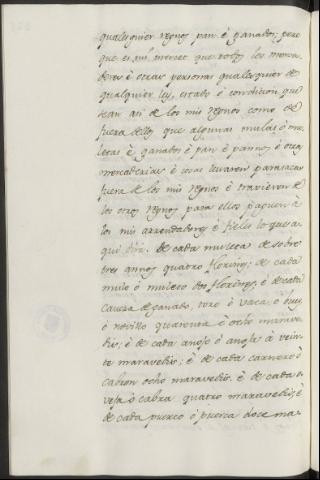 qualesquier regnos pan é ganados; pero
que es mi merced que todos los merca-
deres é otras personas qualesquier de
qualquier ley, estado ó condicion que
sean asi de los mis regnos como de
fuera dellos que algunas mulas ó mu-
letas é ganados é pan é pannos é otras
mercaderias é cosas levaren para sacar
fuera de los mis regnos é traxieren de
los otros regnos para ellos paguen á
los mis arrendadores é fieles lo que a-
qui dirá. De cada muleta de sobre
tres annos quatro florines; de cada
mulo ó muleto dos florines; é de cada
caveza de ganado, toro ó vaca ó buey
ó novillo quarenta é ocho marave-
dis; é de cada anojo ó anoja á vein-
te maravedis; é de cada carnero ó
cabron ocho maravedis. é de cada o-
veja ó cabra quatro maravedis; é
de cada puerco ó puerca doce ma-